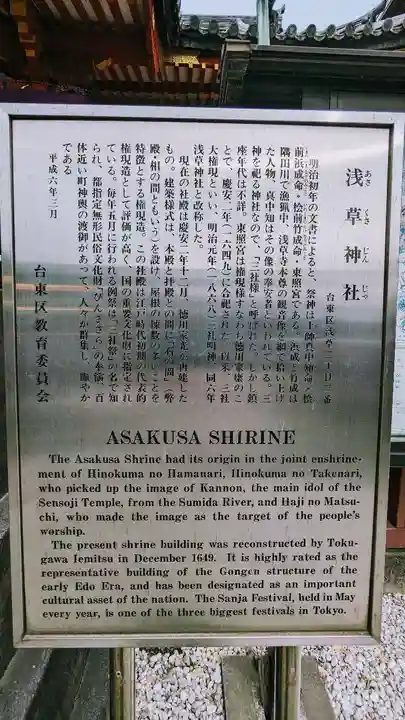 浅草神社
あさ くさ じん じゃ
台東区浅草二丁目三番
明治初年の文書によると、祭神は土師真中知命・桧
前浜成命・桧前竹成命・東照宮である。浜成と竹成は
隅田川で漁猟中、浅草寺本尊の観音像を網で拾い上げ
た人物、真中知はその像の奉安者といわれている。三
神を祀る神社なので、「三社様」と呼ばれた。しかし鎮
座年代は不詳。東照宮は権現様すなわち徳川家康のこ
とで、慶安二年(一六四九)に合祀された。以来、三社
大権現といい、明治元年(一八六八)三社明神、同六年
浅草神社と改称した。
現在の社殿は慶安二年十二月、徳川家光が再建した
もの。建築様式は、本殿と拝殿との間に「石の間」(弊
殿・相の間ともいう)を設け、屋根の棟数の多いことを
特徴とする権現造。この社殿は江戸時代初期の代表的
権現造として評価が高く、国の重要文化財に指定され
ている。毎年五月に行われる例祭は「三社祭」の名で知
られ、都指定無形民俗文化財「びんざさら」の奉演、百
体近い町神輿の渡御があって、人々が群集し、賑やか
である
平成六年三月
台東区教育委員会
ASAKUSA SHIRINE
The Asakusa Shrine had its origin in the joint enshrine-
ment of Hinokuma no Hamanari, Hinokuma no Takenari,
who picked up the image of Kannon, the main idol of the
Sensoji Temple, from the Sumida River, and Haji no Matsu-
chi, who made the image as the target of the people's
worship.
The present shrine building was reconstructed by Toku-
gawa Iemitsu in December 1649. It is highly rated as the
representative building of the Gongen structure of the
early Edo Era, and has been designated as an important
cultural asset of the nation. The Sanja Festival, held in May
every year, is one of the three biggest festivals in Tokyo.